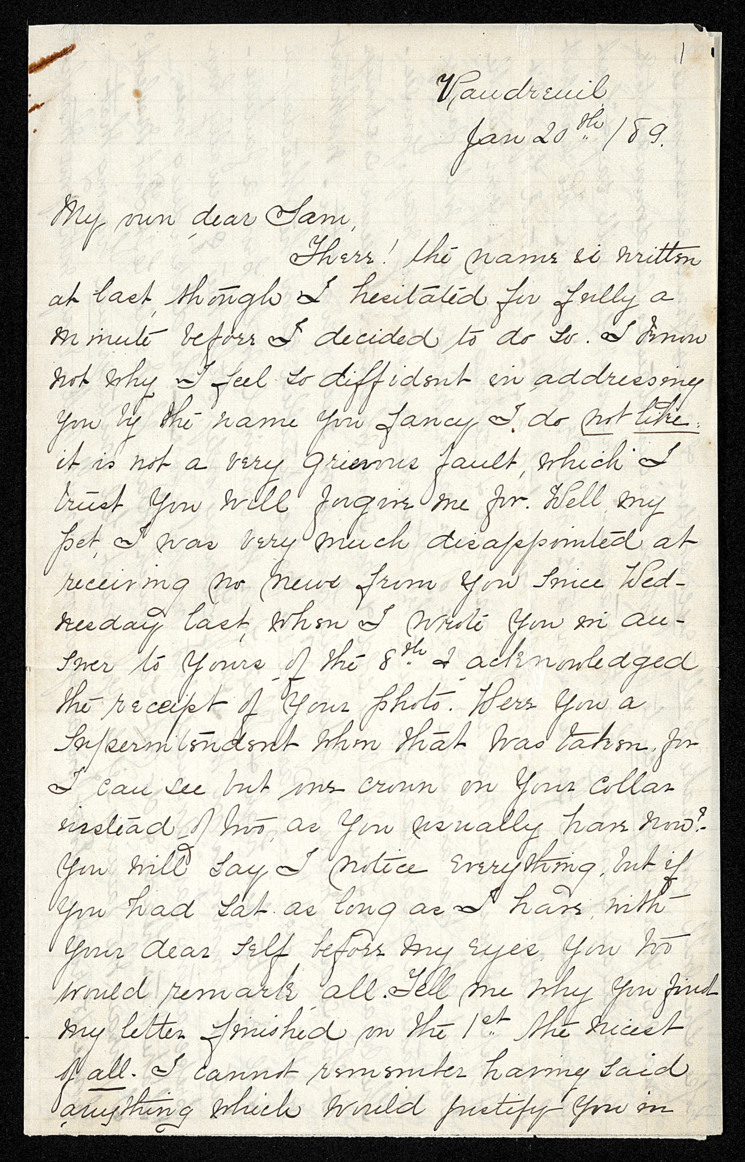 1
Vaudreuil
Jan 20th /89.
My own dear Sam,
There! the name is written
at last, though I hesitated for fully a
minute before I decided to do so. I know
not why I feel so diffident in addressing
you by the name you fancy I do not like,
it is not a very grievous fault, which I
trust you will forgive me for. Well, my
pet, I was very much disappointed at
receiving no news from you since Wed-
nesday last, when I wrote you in an-
swer to yours of the 8th & acknowledged
the receipt of your photo. Were you a
Superintendent when that was taken, for
I can see but one crown on your collar
instead of two, as you usually have now?-
You will say I notice everything, but if
you had sat as long as I have, with
your dear self before my eyes, you too
would remark all. Tell me why you find
my letter finished on the 1st the nicest
of all. I cannot remember having said
anything which would justify you in